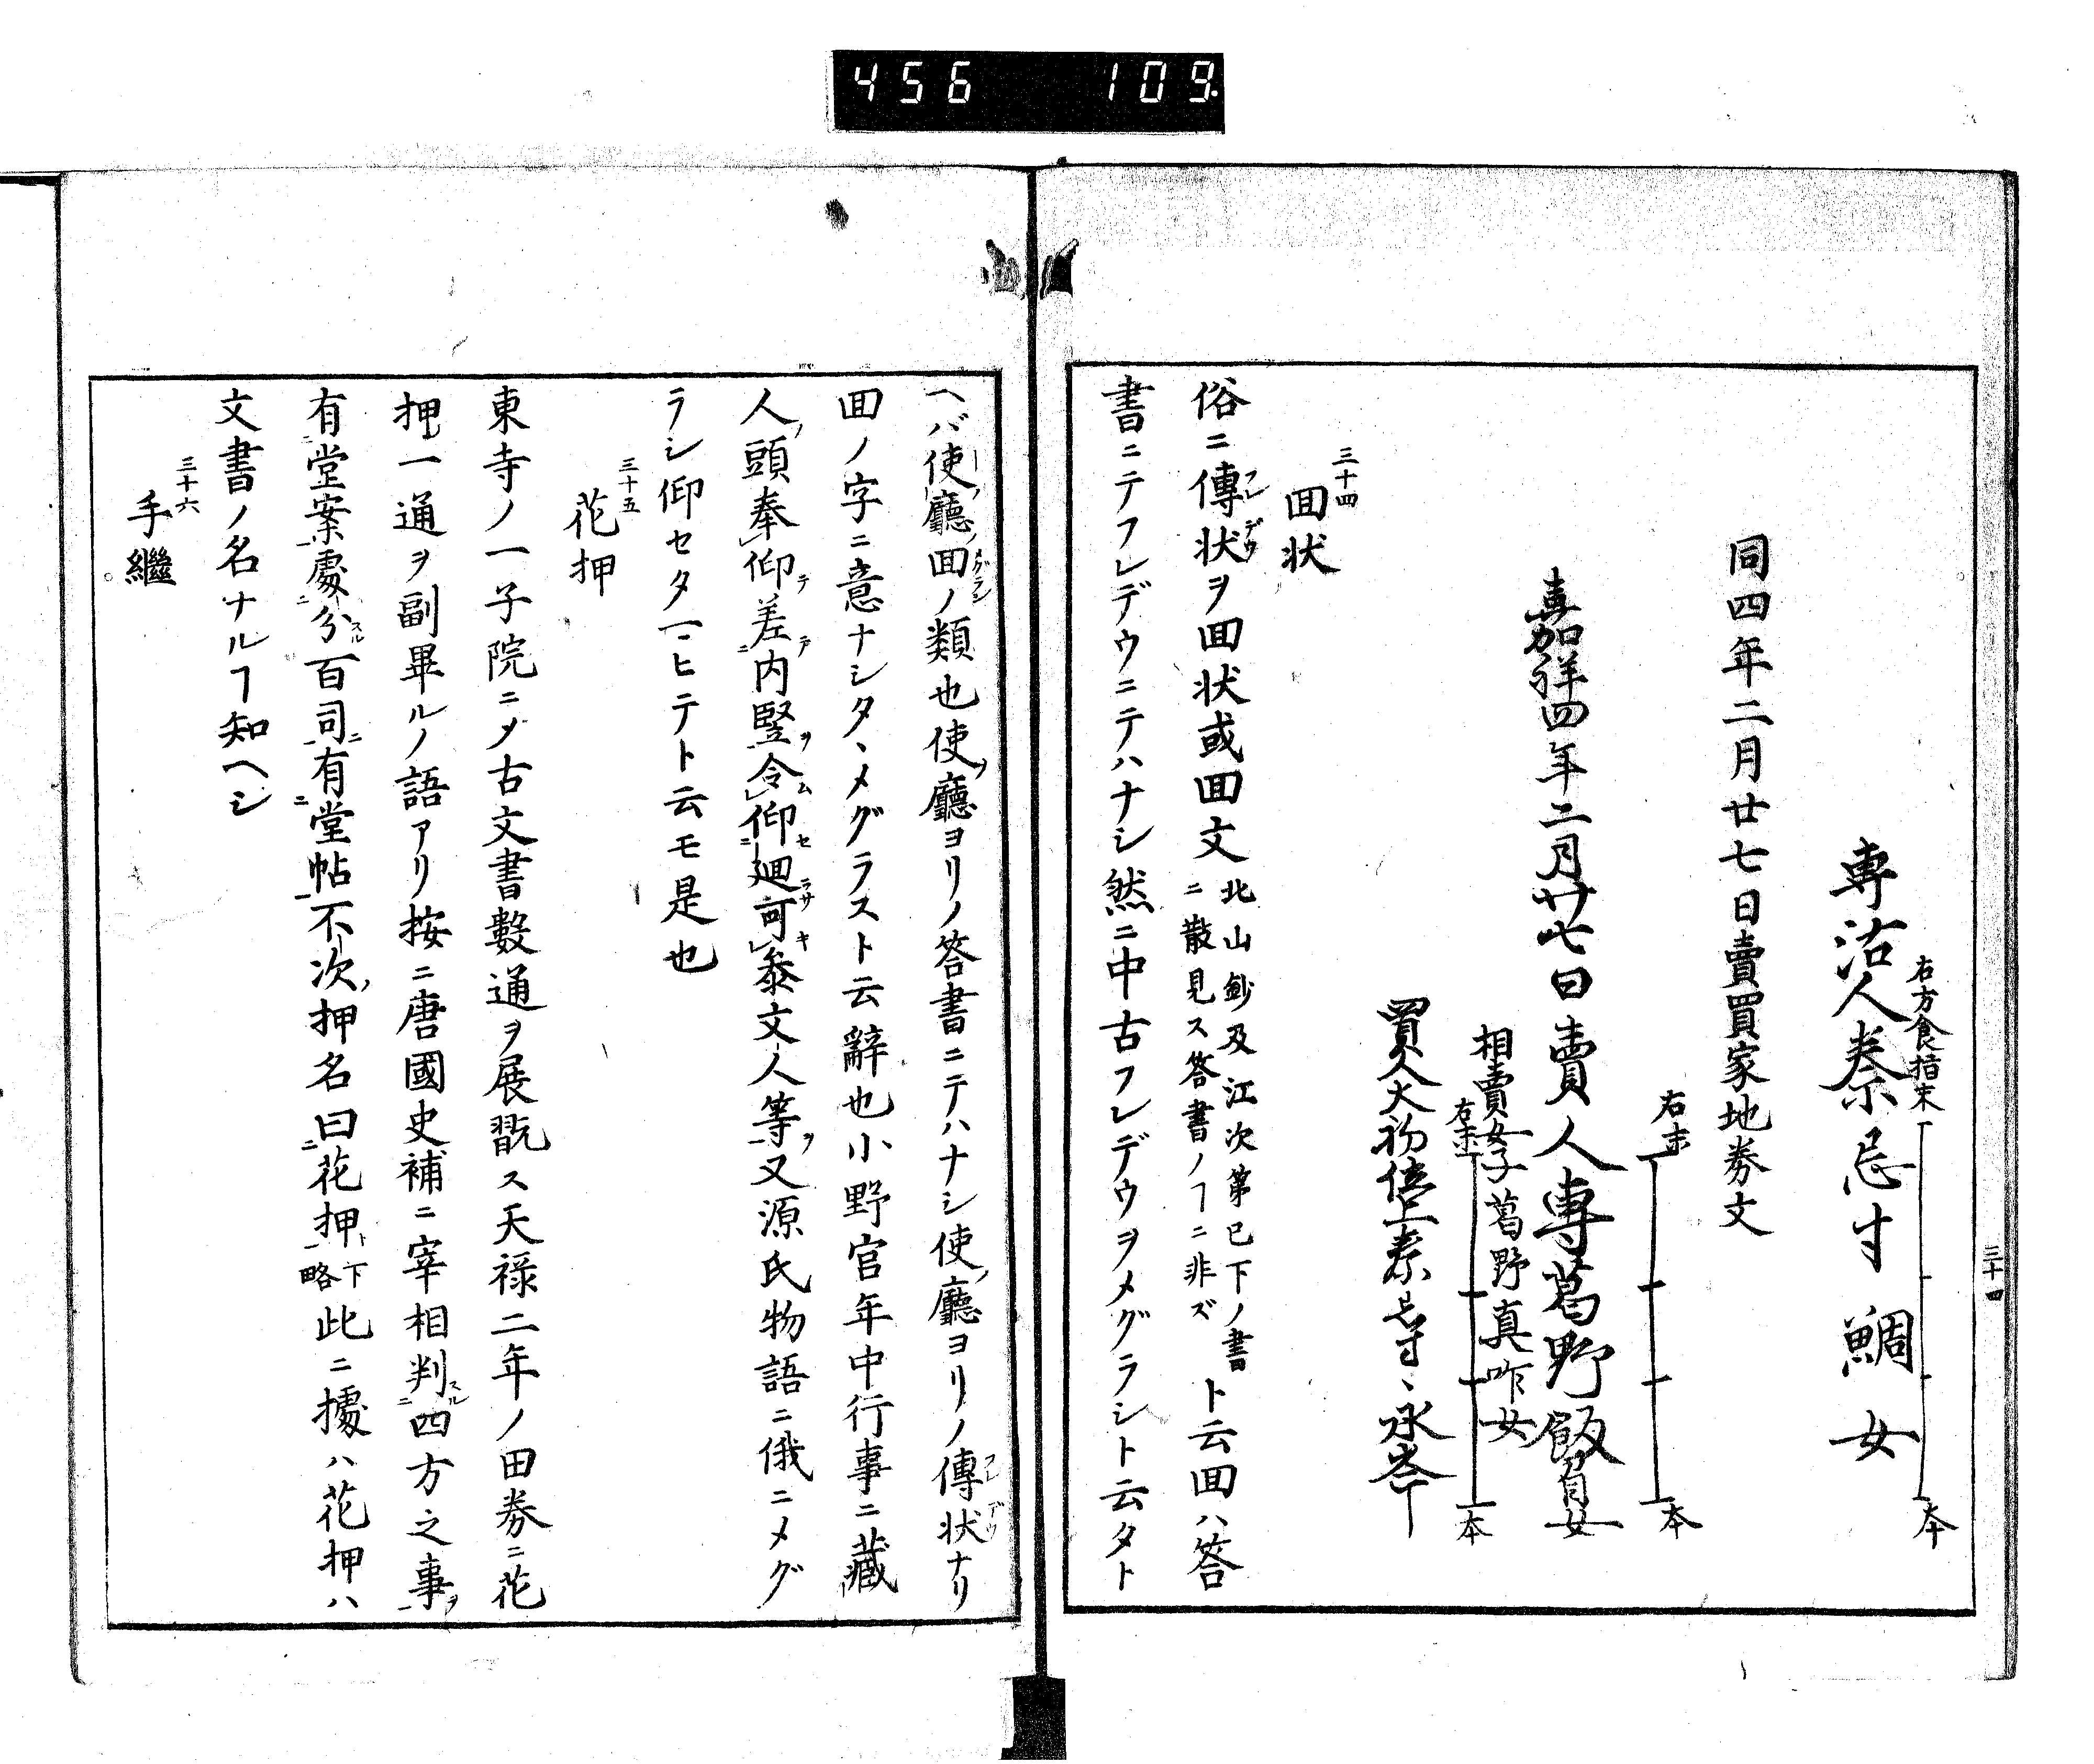 456 109
三十四
右方食指末
本
専沽人秦忌寸 鯛女
同四年二月廿七日賣買家地券文
右末
本
嘉祥四年二月廿七日賣人専葛野飯負女
相賣女子葛野真咋女
右末
本
買人大初位上秦忌寸、永岑
三十四
回状
俗ニ傳状ヲ回状或回文北山鈔及江次第已下ノ書
ニ散見ス答書ノヿニ非ズト云回ハ答
書ニテフレデウニテハナシ然ニ中古フレデウヲメグラシト云タト
ヘバ使ノ廳ノ回ノ類也使ノ廳ヨリノ答書ニテハナシ使ノ廳ヨリノ傳状ナリ
回ノ字ニ意ナシタヽメグラスト云辭也小野官年中行事ニ藏
人頭奉仰差内竪令仰廻可参文人等又源氏物語ニ俄ニメグ
ラシ仰セタマヒテト云モ是也
三十五
花押
東寺ノ一子院ニメ古文書數通ヲ展翫ス天禄二年ノ田券ニ花
押一通ヲ副畢ルノ語アリ按ニ唐國史補ニ宰相判四方之事
有堂案處分百司有堂帖不次押名曰花押下略此ニ據ハ花押ハ
文書ノ名ナルヿ知ヘシ
三十六
手繼